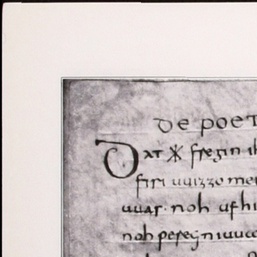 DE POET
Dat * fregin ih
firi uuizzo mei
uuas · noh ufhi
noh pereg ni uua